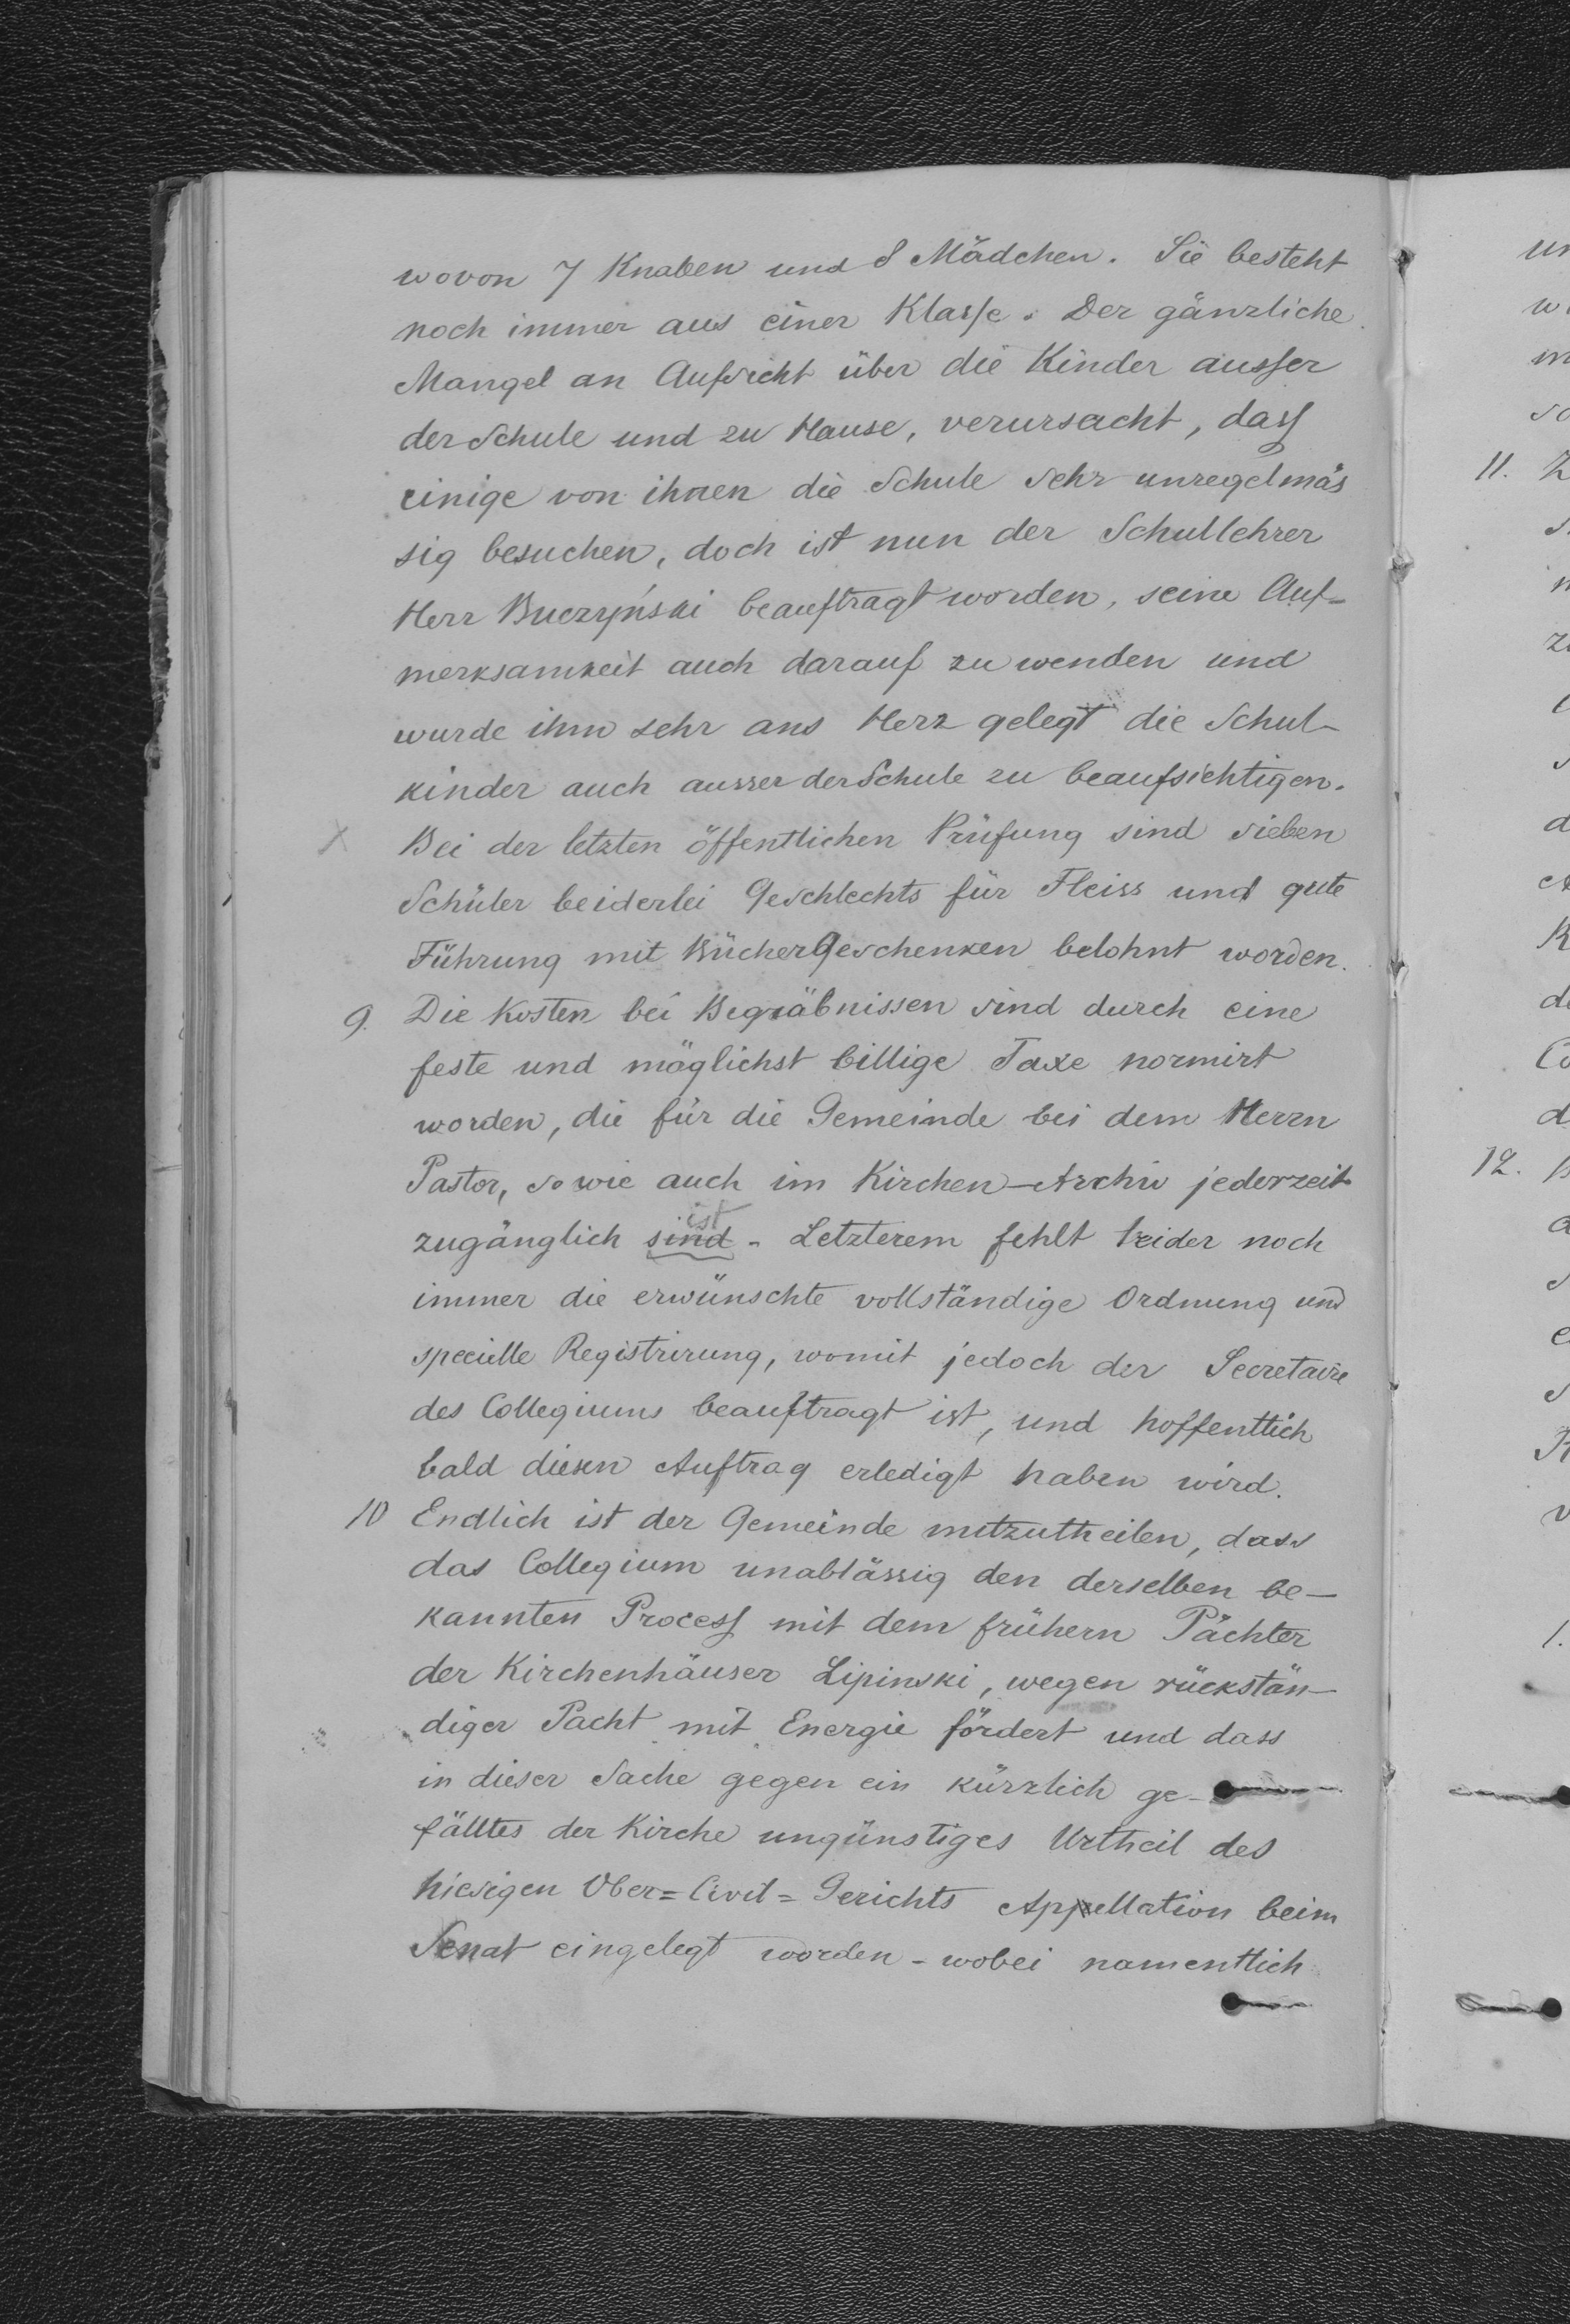 wovon 7 Knaben und 8 Mädchen. Sie besteht
noch immer aus einer Klasse. Der gänzliche
Mangel an Aufsicht über die Kinder ausser
der Schule und zu Hause, verursacht, dass
einige von ihnen die Schule sehr unregelmäs
sig besuchen, doch ist nun der Schullehrer
Herr Buczyński beauftragt worden, seine Auf-
merksamkeit auch darauf zu wenden und
wurde ihm sehr ans Herz gelegt die Schul-
kinder auch ausser der Schule zu beaufsichtigen.
x Bei der letzten öffentlichen Prüfung sind sieben
Schüler beiderlei Geschlechts für Fleiss und gute
Führung mit BücherGeschenken belohnt worden.
9. Die Kosten bei Begräbnissen sind durch eine
feste und möglichst billige Taxe normirt
worden, die für die Gemeinde bei dem Herrn
Pastor, sowie auch im Kirchen-Archiv jederzeit
ist
zugänglich sind - Letzterem fehlt leider noch
immer die erwünschte vollständige Ordnung und
specielle Registrirung, womit jedoch der Secretaire
des Collegiums beauftragt ist, und hoffentlich
bald diesen Auftrag erledigt haben wird.
10 Endlich ist der Gemeinde mitzutheilen, dass
das Collegium unablässig den derselben be-
kannten Process mit dem frühern Pächter
der Kirchenhäuser Lipinski, wegen rückstän-
diger Pacht mit Energie fördert und dass
in dieser Sache gegen ein kürzlich ge-
fälltes der Kirche ungünstiges Urtheil des
hiesigen Ober=Civil=Gerichts Appellation beim
Senat eingelegt worden - wobei namentlich
11.
12.
1.